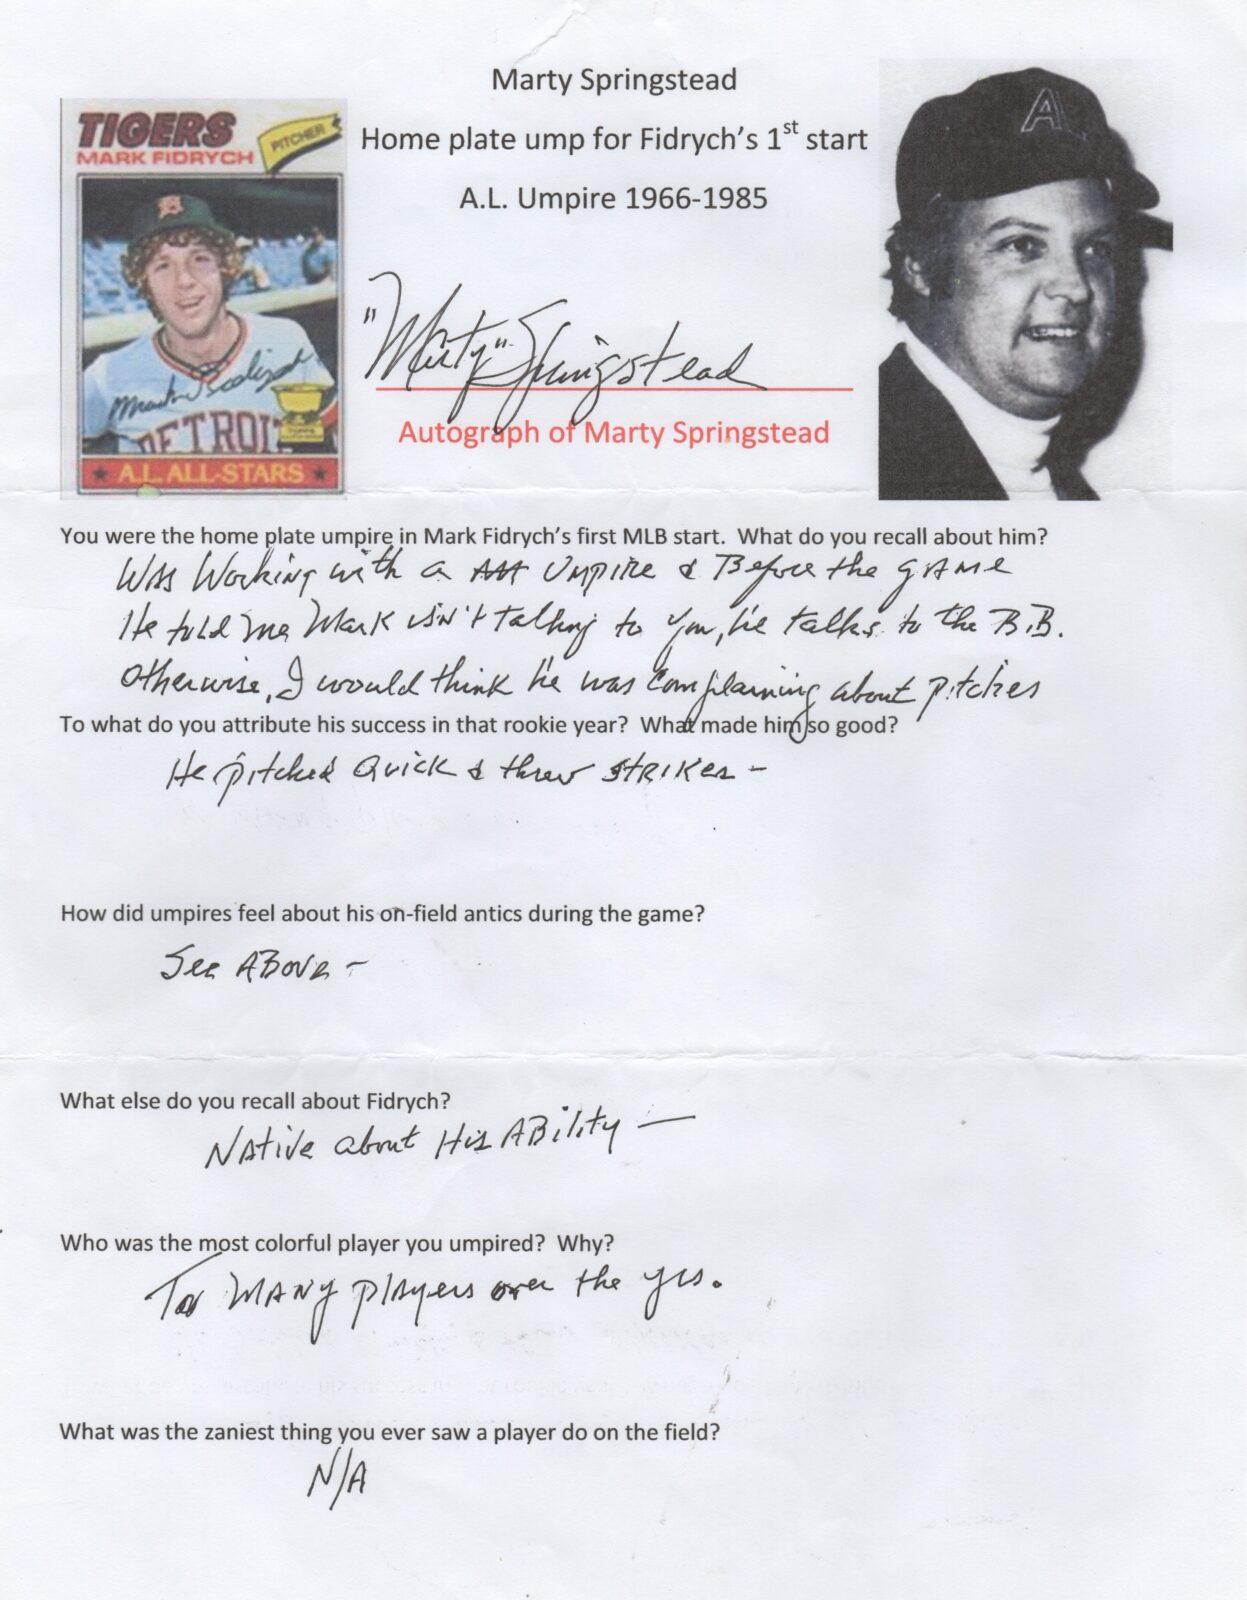 Marty Springstead
Home plate ump for Fidrych's 1st start
A.L. Umpire 1966-1985
TIGERS
PITCHER
MARK FIDRYCH
DETROIT
A.L. ALL-STARS
A
"Marty" Springstead
Autograph of Marty Springstead
You were the home plate umpire in Mark Fidrych's first MLB start. What do you recall about him?
Was Working with a AAA Umpire & Before the game
He told me Mark isn't talking to you, he talks to the B.B.
Otherwise, I would think he was complaining about pitches
To what do you attribute his success in that rookie year? What made him so good?
He pitched Quick & threw STRIKES -
How did umpires feel about his on-field antics during the game?
See ABove -
What else do you recall about Fidrych?
Native about His ABility —
Who was the most colorful player you umpired? Why?
To MANY players over the yrs.
What was the zaniest thing you ever saw a player do on the field?
N/A